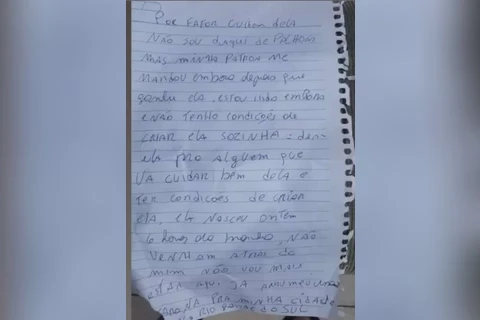 POR FAFOR CUIDEM DELA
NÃO SOU DAQUI DE PALHOÇA
MAS MINHA PATROA ME
MANDOU EMBORA DEPOIS QUE
ELA. ESTOU INDO EMBORA
E NÃO TENHO CONDIÇÕES DE
CRIAR ELA SOZINHA
ELA PRO ALGUEM QUE
VA CUIDAR BEM DELA E
TER CONDICOES DE CRIAR
ELA, ELA NASCEU ONTEM
6 HORAS DA MANHÃ, NÃO
VENHAM ATRAS DE
MIM NÃO VOU MAIS
ESTAR AQUI. JA ARRUMEI UMA
CARONA PRA MINHA CIDADE
RIO GRANDE DO SUL